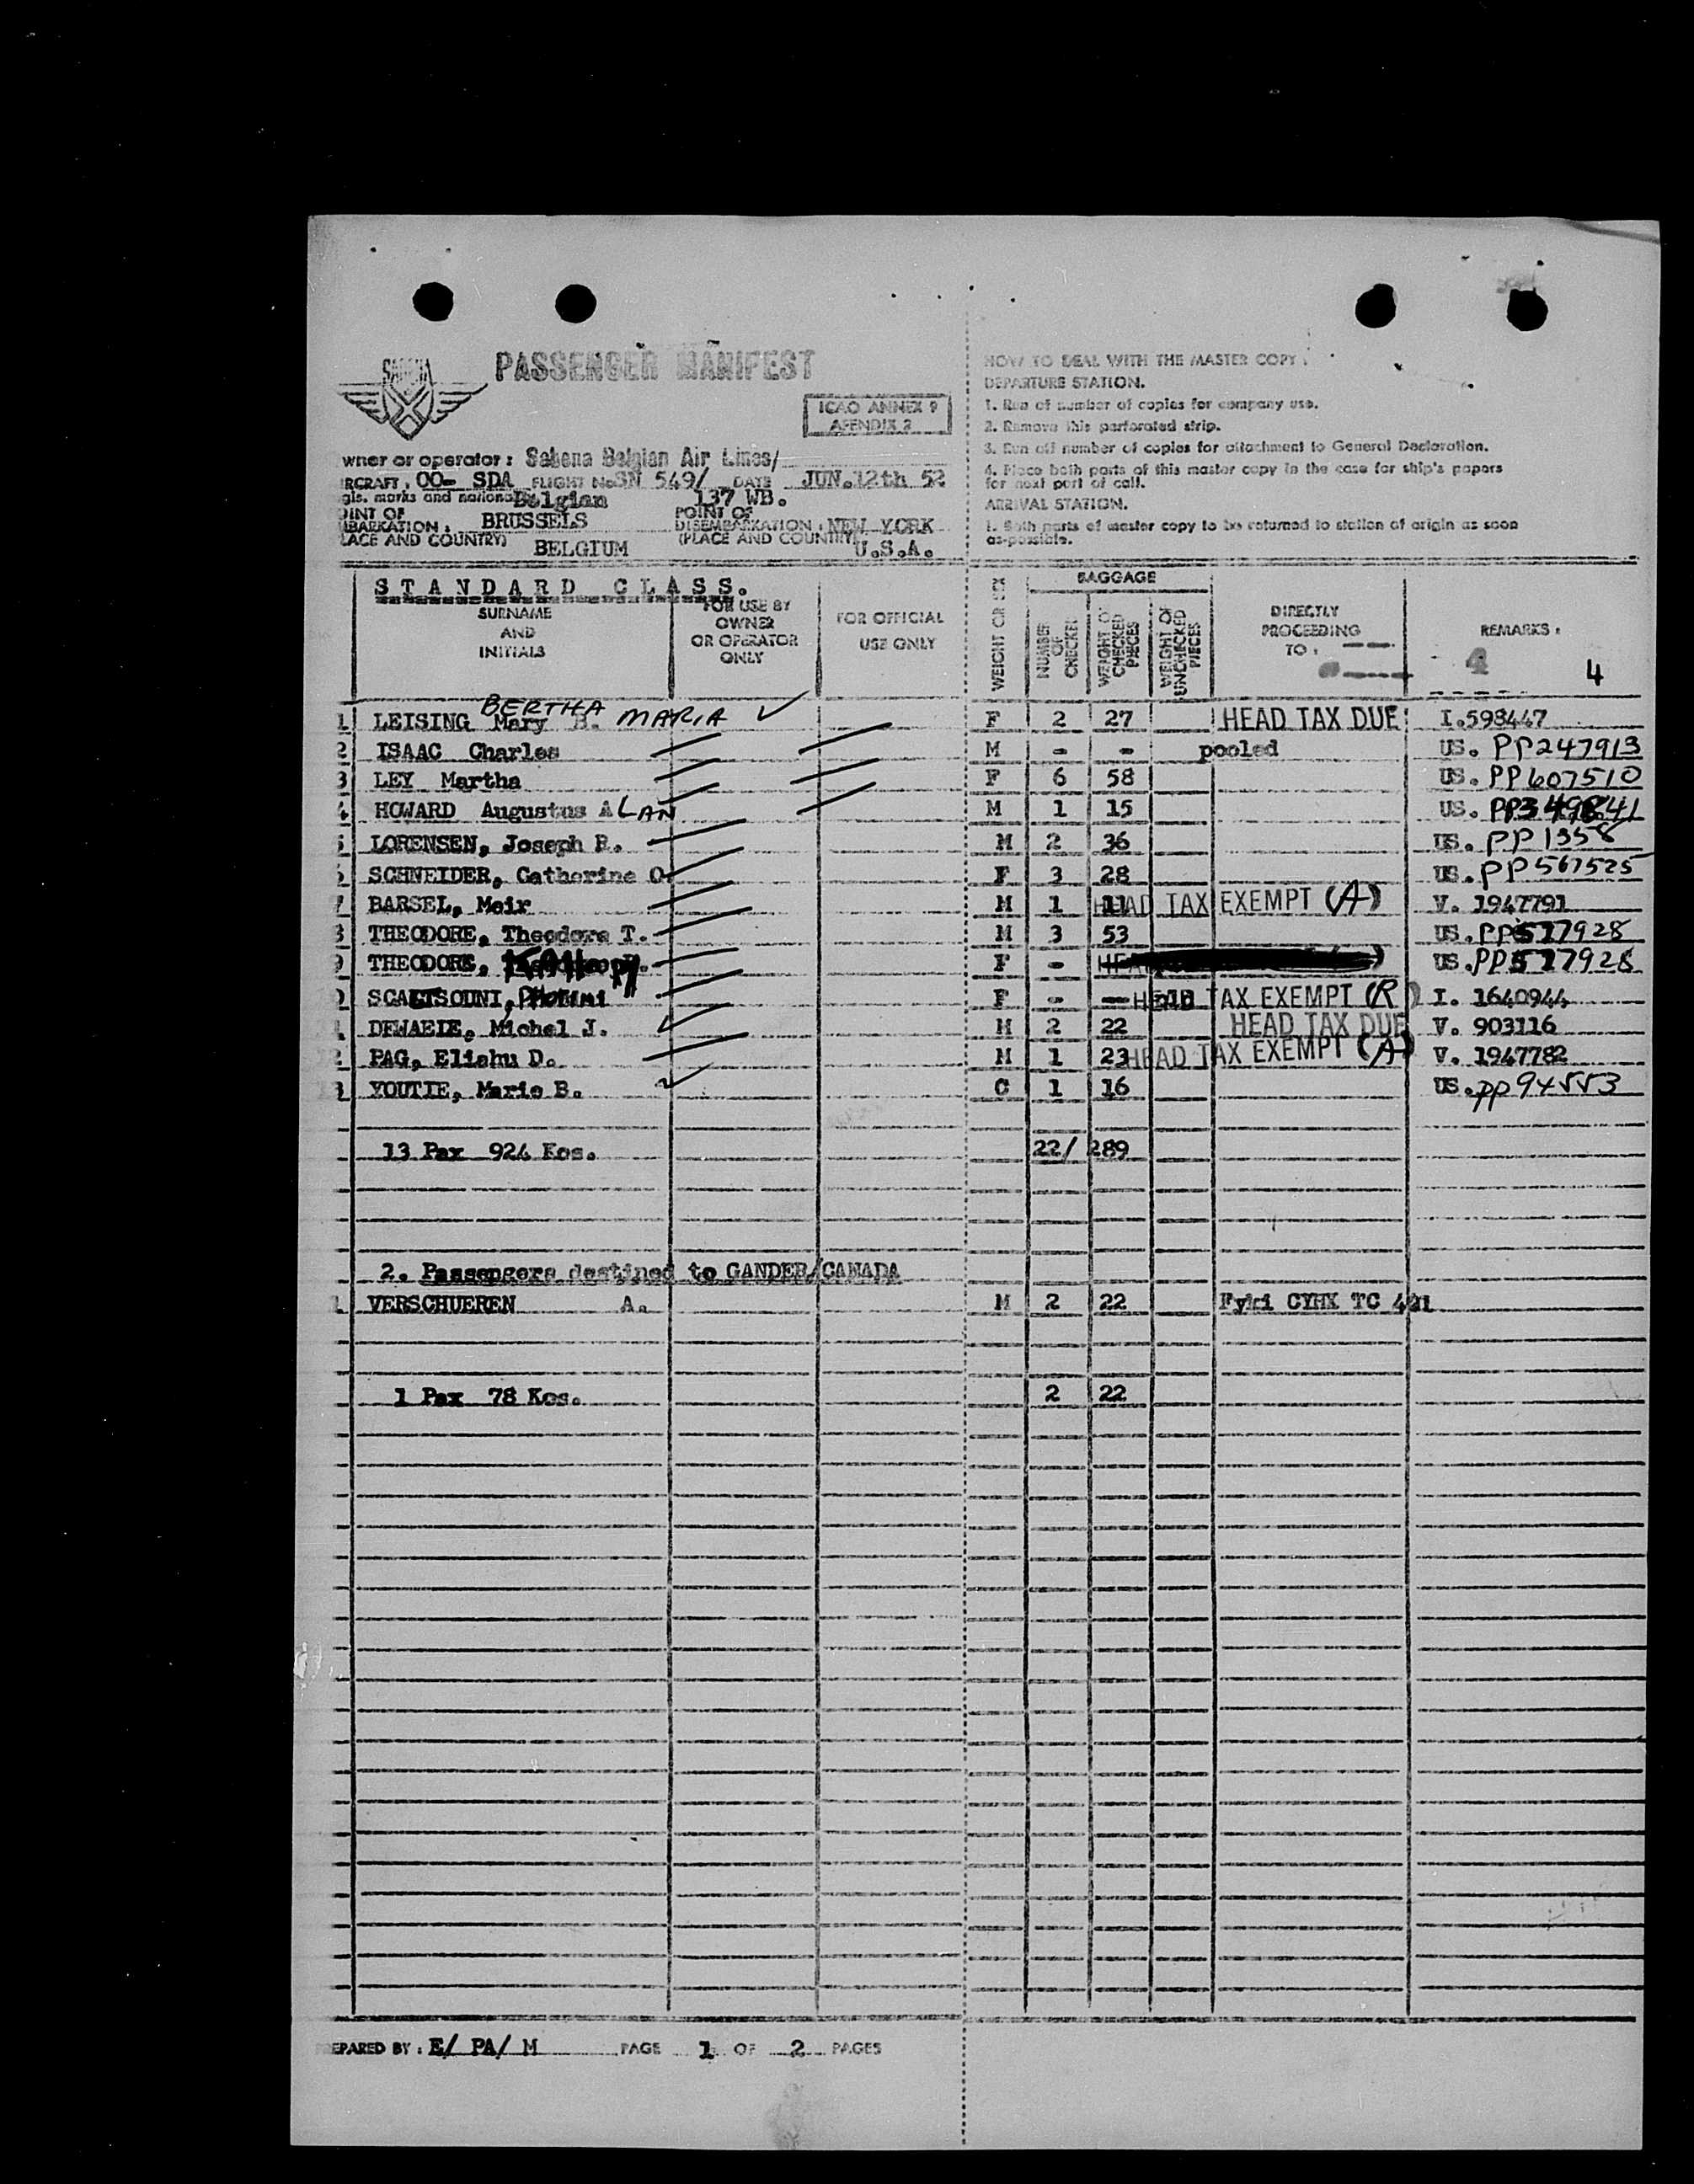 SABENA
PASSENGER MANIFEST
ICAO ANNEX 9
APENDIX 2
wner or operator : Sabena Belgian Air Lines/
IRCRAFT, OO- SDA FLIGHT No SN 549/ DATE JUN.12th 52
gis. marks and national Belgian 137 WB.
OINT OF
MBARKATION : BRUSSELS
LACE AND COUNTRY) BELGIUM
POINT OF
DISEMBARKATION : NEW YORK
(PLACE AND COUNTRY) U.S.A.
HOW TO DEAL WITH THE MASTER COPY :
DEPARTURE STATION.
1. Run of number of copies for company use.
2. Remove this perforated strip.
3. Run off number of copies for attachment to General Declaration.
4. Place both parts of this master copy in the case for ship's papers
for next port of call.
ARRIVAL STATION.
1. Both parts of master copy to be returned to station of origin as soon
as-possible.
STANDARD CLASS.
SURNAME
AND
INITIALS
FOR USE BY
OWNER
OR OPERATOR
ONLY
FOR OFFICIAL
USE ONLY
WEIGHT OR SEX
BAGGAGE
NUMBER
OF
CHECKED
WEIGHT OF
CHECKED
PIECES
WEIGHT OF
UNCHECKED
PIECES
DIRECTLY
PROCEEDING
TO :
REMARKS :
4 4
BERTHA
1 LEISING Mary B. MARIA F 2 27 HEAD TAX DUE I.598447
2 ISAAC Charles M - - pooled US. PP247913
3 LEY Martha F 6 58 US. PP607510
4 HOWARD Augustus ALAN M 1 15 US. PP349841
LORENSEN, Joseph R. M 2 36 US. PP1358
SCHNEIDER, Catherine O. F 3 28 US. PP567525
7 BARSEL, Meir M 1 11 HEAD TAX EXEMPT (A) V. 1947791
THEODORE, Theodore T. M 3 53 US. PP577928
9 THEODORE, F - US. PP577928
SCALTSOUNI, F - - HEAD TAX EXEMPT (R) I. 1640944
DEWAEIE, Michel J. M 2 22 HEAD TAX DUE V. 903116
2 PAG, Eliahu D. M 1 23 HEAD TAX EXEMPT (A) V. 1947782
YOUTIE, Marie B. C 1 16 US. PP94553
13 Pax 924 Kos. 22/ 289
2. Passengers destined to GANDER/CANADA
1 VERSCHUEREN A. M 2 22 Fyki CYHX TC 401
1 Pax 78 Kos. 2 22
EPARED BY : E/ PA/ M PAGE 1 OF 2 PAGES